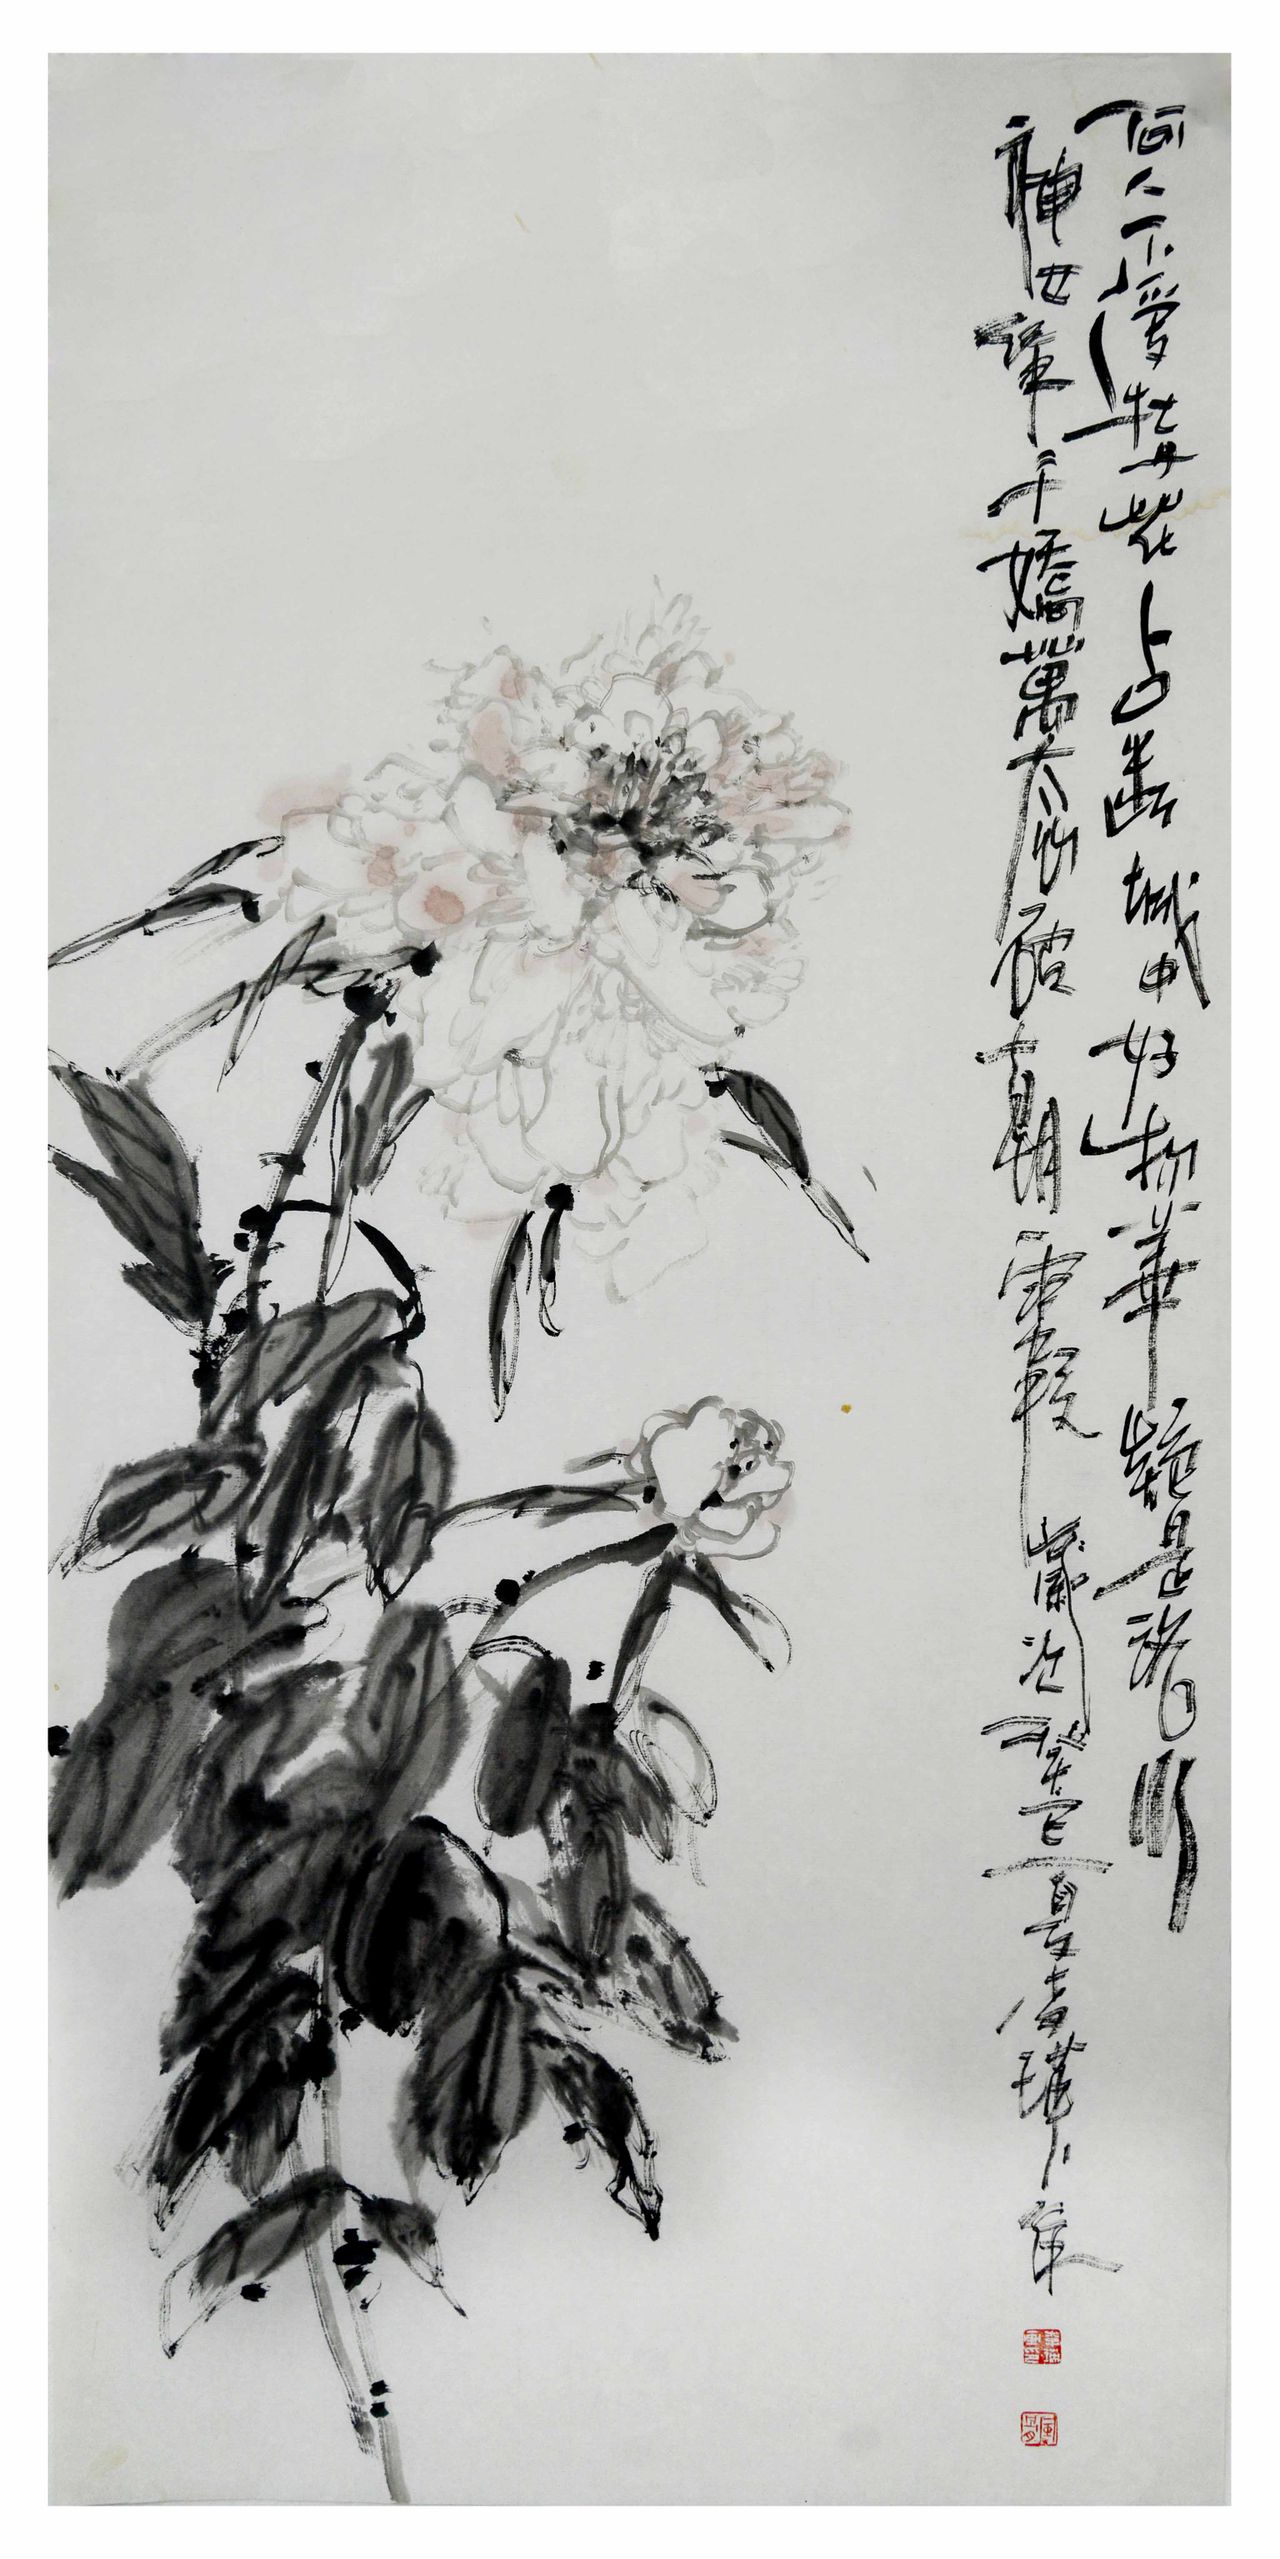 何人不愛牡丹花占斷城中好物華疑是洛川
神女作千嬌萬態破朝霞歲次癸巳夏月